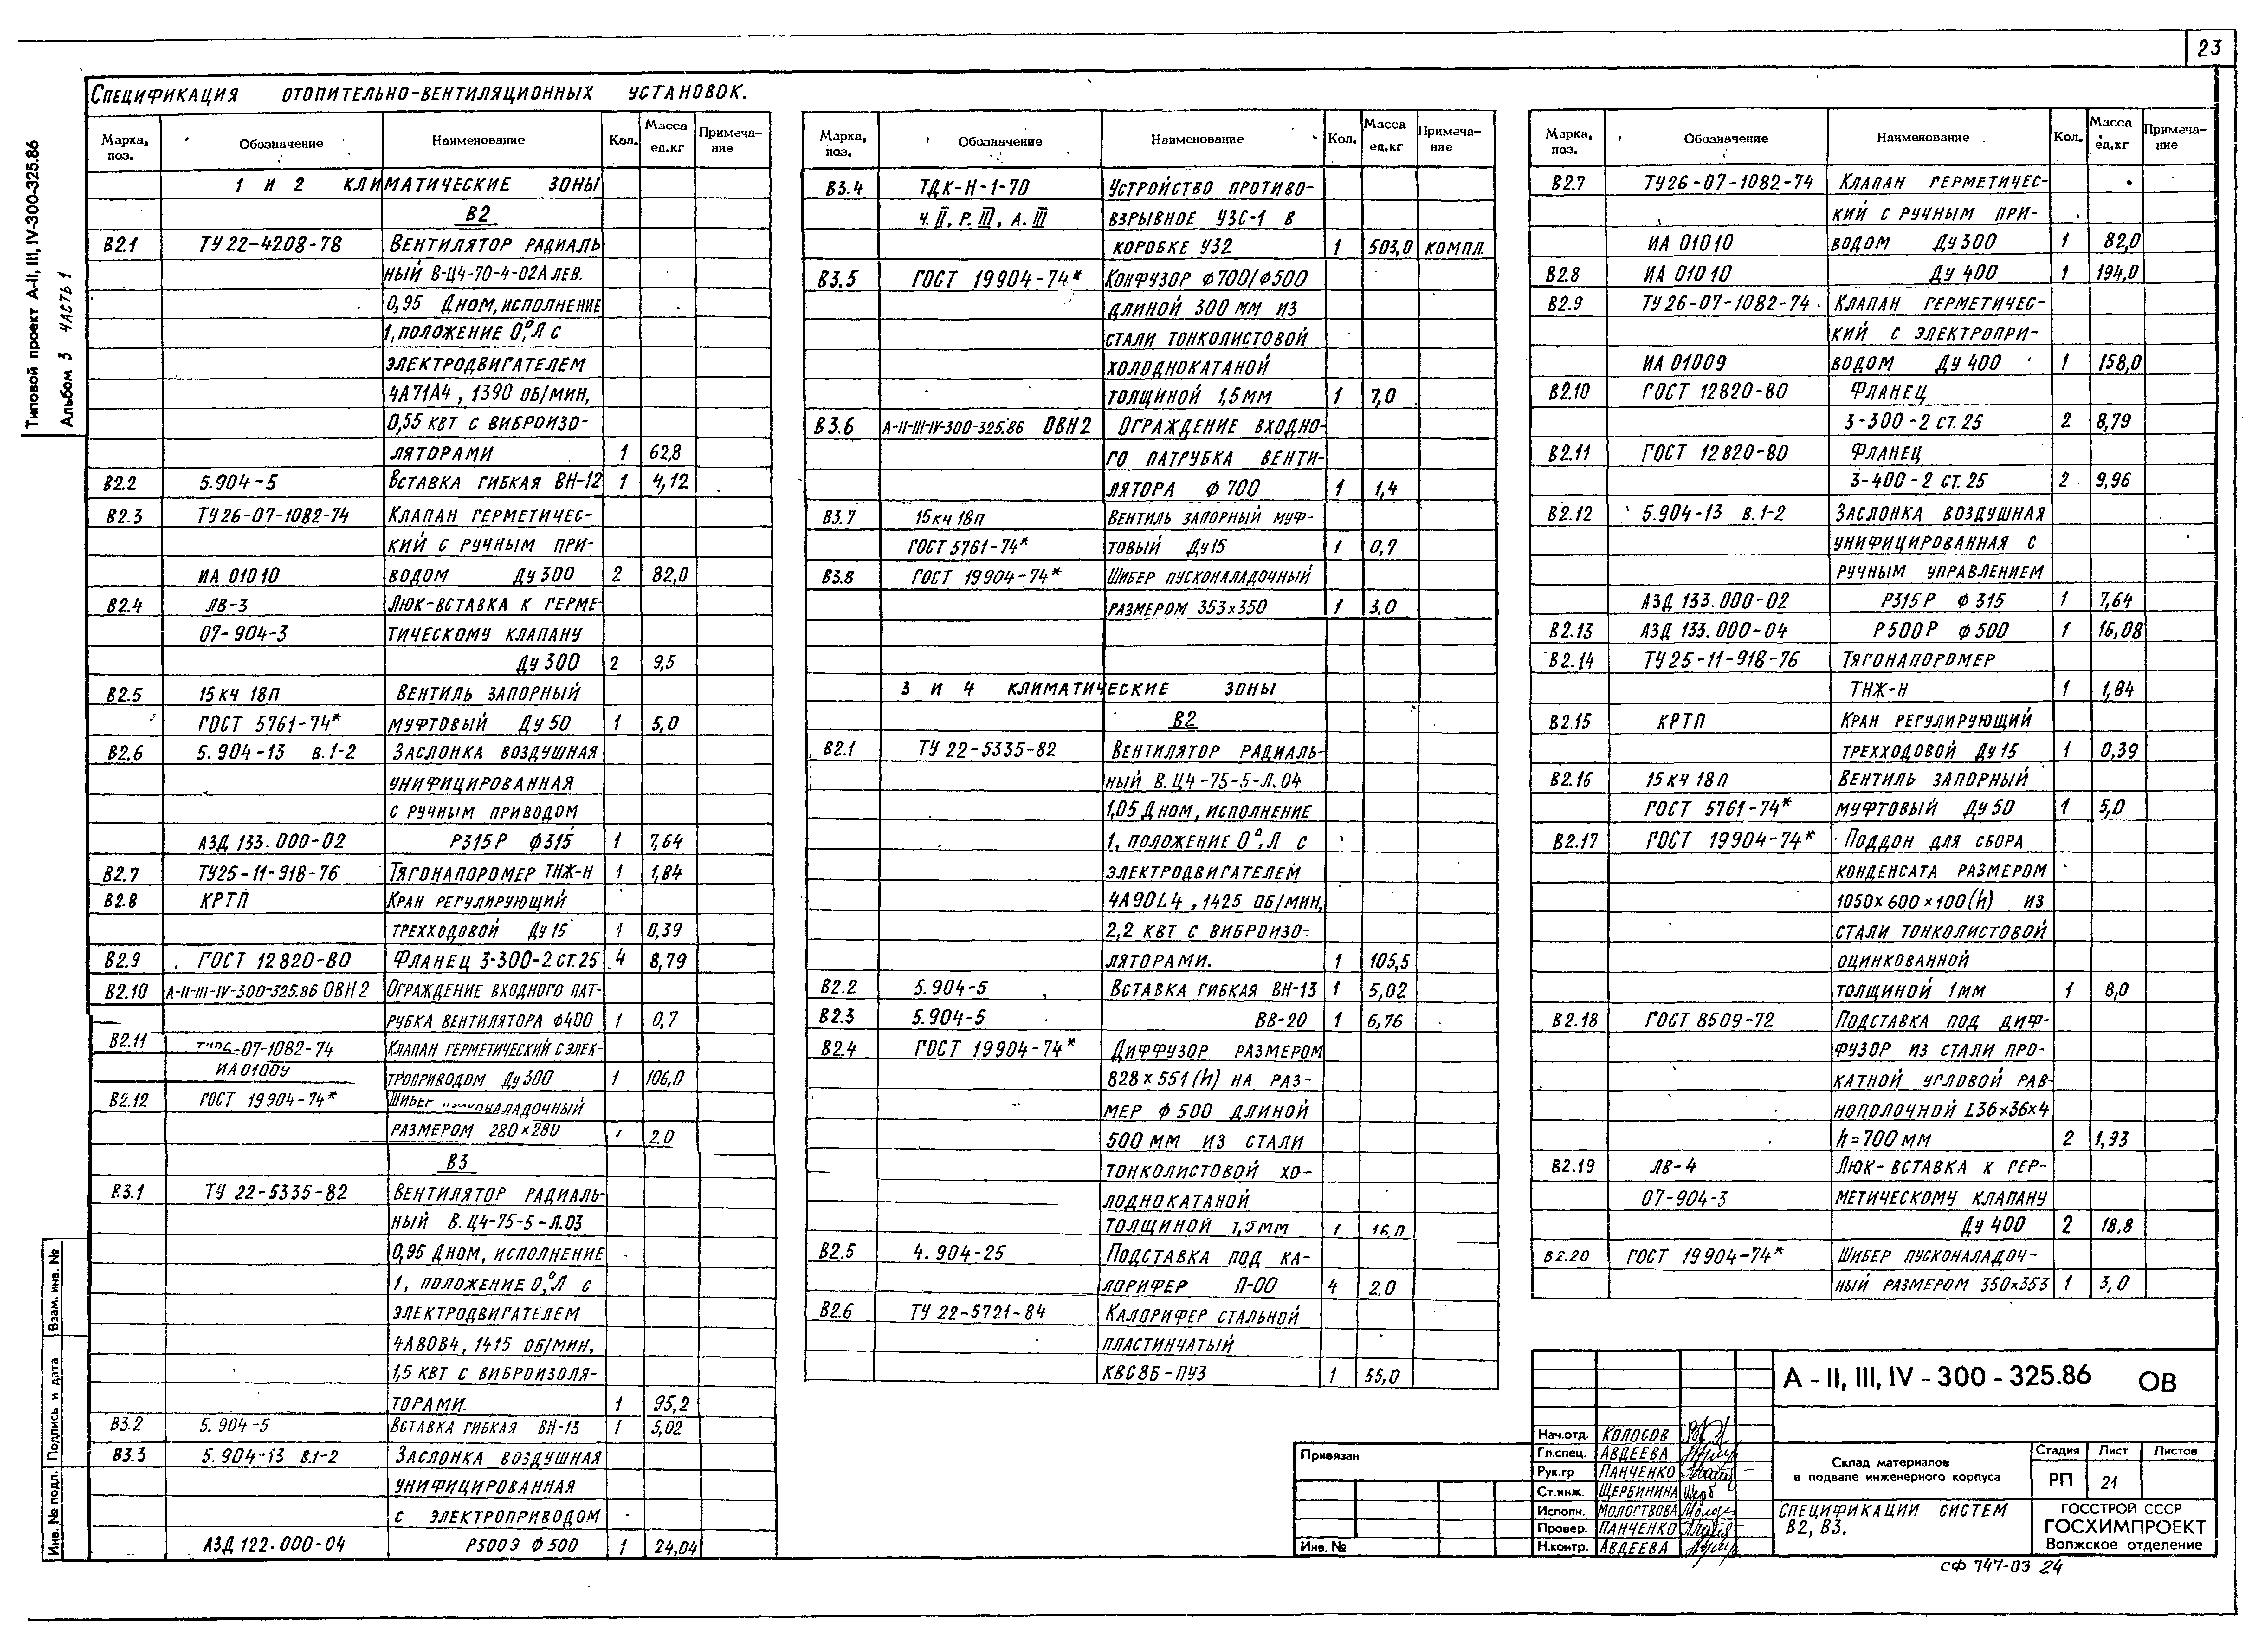 23
Типовой проект А-II, III, IV-300-325.86
Альбом 3 часть 1
Спецификация отопительно-вентиляционных установок.
Марка, поз. Обозначение Наименование Кол. Масса ед.кг Примеча-ние
1 и 2 климатические зоны
В2
В2.1 ТУ 22-4208-78 Вентилятор радиаль
ный В-Ц4-70-4-02А лев.
0,95 Дном, исполнение
1, положение 0°, Л с
электродвигателем
4А71А4, 1390 об/мин,
0,55 квт с виброизо-
ляторами 1 62,8
В2.2 5.904-5 Вставка гибкая ВН-12 1 4,12
В2.3 ТУ26-07-1082-74 Клапан герметичес-
кий с ручным при-
ИА 01010 водом Ду 300 2 82,0
В2.4 ЛВ-3 Люк-вставка к герме-
07-904-3 тическому клапану
Ду 300 2 9,5
В2.5 15кч 18п Вентиль запорный
ГОСТ 5761-74* муфтовый Ду 50 1 5,0
В2.6 5.904-13 в.1-2 Заслонка воздушная
унифицированная
с ручным приводом
АЗД 133.000-02 Р315Р ф315 1 7,64
В2.7 ТУ25-11-918-76 Тягонапоромер ТНЖ-Н 1 1,84
В2.8 КРТП Кран регулирующий
трехходовой Ду 15 1 0,39
В2.9 ГОСТ 12820-80 Фланец 3-300-2 ст.25 4 8,79
В2.10 А-II-III-IV-300-325.86 ОВН2 Ограждение входного пат-
рубка вентилятора ф400 1 0,7
В2.11 ТУ26-07-1082-74 Клапан герметический с элек-
ИА01009 троприводом Ду 300 1 106,0
В2.12 ГОСТ 19904-74* Шибер пусконаладочный
размером 280×280 2.0
В3
В3.1 ТУ 22-5335-82 Вентилятор радиаль-
ный В.Ц4-75-5-Л.03
0,95 Дном, исполнение
1, положение 0°, Л с
электродвигателем
4А80В4, 1415 об/мин,
1,5 квт с виброизоля-
торами. 1 95,2
В3.2 5.904-5 Вставка гибкая ВН-13 1 5,02
В3.3 5.904-13 в.1-2 Заслонка воздушная
унифицированная
с электроприводом
АЗД 122.000-04 Р500Э ф500 1 24,04
Марка, поз. Обозначение Наименование Кол. Масса ед.кг Примеча-ние
В3.4 ТДК-Н-1-70 Устройство противо-
ч. II, р. III, А. III взрывное УЗС-1 в
коробке УЗ2 1 503,0 компл.
В3.5 ГОСТ 19904-74* Конфузор ф700/ф500
длиной 300 мм из
стали тонколистовой
холоднокатаной
толщиной 1,5 мм 1 7,0
В3.6 А-II-III-IV-300-325.86 ОВН2 Ограждение входно-
го патрубка венти-
лятора ф 700 1 1,4
В3.7 15кч 18п Вентиль запорный муф-
ГОСТ 5761-74* товый Ду15 1 0,7
В3.8 ГОСТ 19904-74* Шибер пусконаладочный
размером 353×350 1 3,0
3 и 4 климатические зоны
В2
В2.1 ТУ 22-5335-82 Вентилятор радиаль-
ный В.Ц4-75-5-Л.04
1,05 Дном, исполнение
1, положение 0°, Л с
электродвигателем
4А90L4, 1425 об/мин,
2,2 квт с виброизо-
ляторами. 1 105,5
В2.2 5.904-5 Вставка гибкая ВН-13 1 5,02
В2.3 5.904-5 ВВ-20 1 6,76
В2.4 ГОСТ 19904-74* Диффузор размером
828×551(h) на раз-
мер ф 500 длиной
500 мм из стали
тонколистовой хо-
лоднокатаной
толщиной 1,5 мм 1 16,0
В2.5 4.904-25 Подставка под ка-
лорифер П-00 4 2.0
В2.6 ТУ 22-5721-84 Калорифер стальной
пластинчатый
КВС8Б-ПУЗ 1 55,0
Марка, поз. Обозначение Наименование Кол. Масса ед.кг Примеча-ние
В2.7 ТУ26-07-1082-74 Клапан герметичес-
кий с ручным при-
ИА 01010 водом Ду 300 1 82,0
В2.8 ИА 01010 Ду 400 1 194,0
В2.9 ТУ26-07-1082-74 Клапан герметичес-
кий с электропри-
ИА 01009 водом Ду 400 1 158,0
В2.10 ГОСТ 12820-80 Фланец
3-300-2 ст.25 2 8,79
В2.11 ГОСТ 12820-80 Фланец
3-400-2 ст.25 2 9,96
В2.12 5.904-13 в.1-2 Заслонка воздушная
унифицированная с
ручным управлением
АЗД 133.000-02 Р315Р ф 315 1 7,64
В2.13 АЗД 133.000-04 Р500Р ф500 1 16,08
В2.14 ТУ25-11-918-76 Тягонапоромер
ТНЖ-Н 1 1,84
В2.15 КРТП Кран регулирующий
трехходовой Ду15 1 0,39
В2.16 15кч 18п Вентиль запорный
ГОСТ 5761-74* муфтовый Ду50 1 5,0
В2.17 ГОСТ 19904-74* Поддон для сбора
конденсата размером
1050×600×100(h) из
стали тонколистовой
оцинкованной
толщиной 1мм 1 8,0
В2.18 ГОСТ 8509-72 Подставка под диф-
фузор из стали про-
катной угловой рав-
нополочной L36×36×4
h=700 мм 2 1,93
В2.19 ЛВ-4 Люк-вставка к гер-
07-904-3 метическому клапану
Ду 400 2 18,8
В2.20 ГОСТ 19904-74* Шибер пусконаладоч-
ный размером 350×353 1 3,0
Взам. инв. №
Подпись и дата
Инв. № подл.
Привязан
Инв. №
Нач.отд. Колосов
Гл.спец. Авдеева
Рук.гр Панченко
Ст.инж. Щербинина
Исполн. Молоствова
Провер. Панченко
Н.контр. Авдеева
А - II, III, IV - 300 - 325.86 ОВ
Склад материалов
в подвале инженерного корпуса
Стадия Лист Листов
РП 21
Спецификации систем
В2, В3.
ГОССТРОЙ СССР
ГОСХИМПРОЕКТ
Волжское отделение
СФ 747-03 24